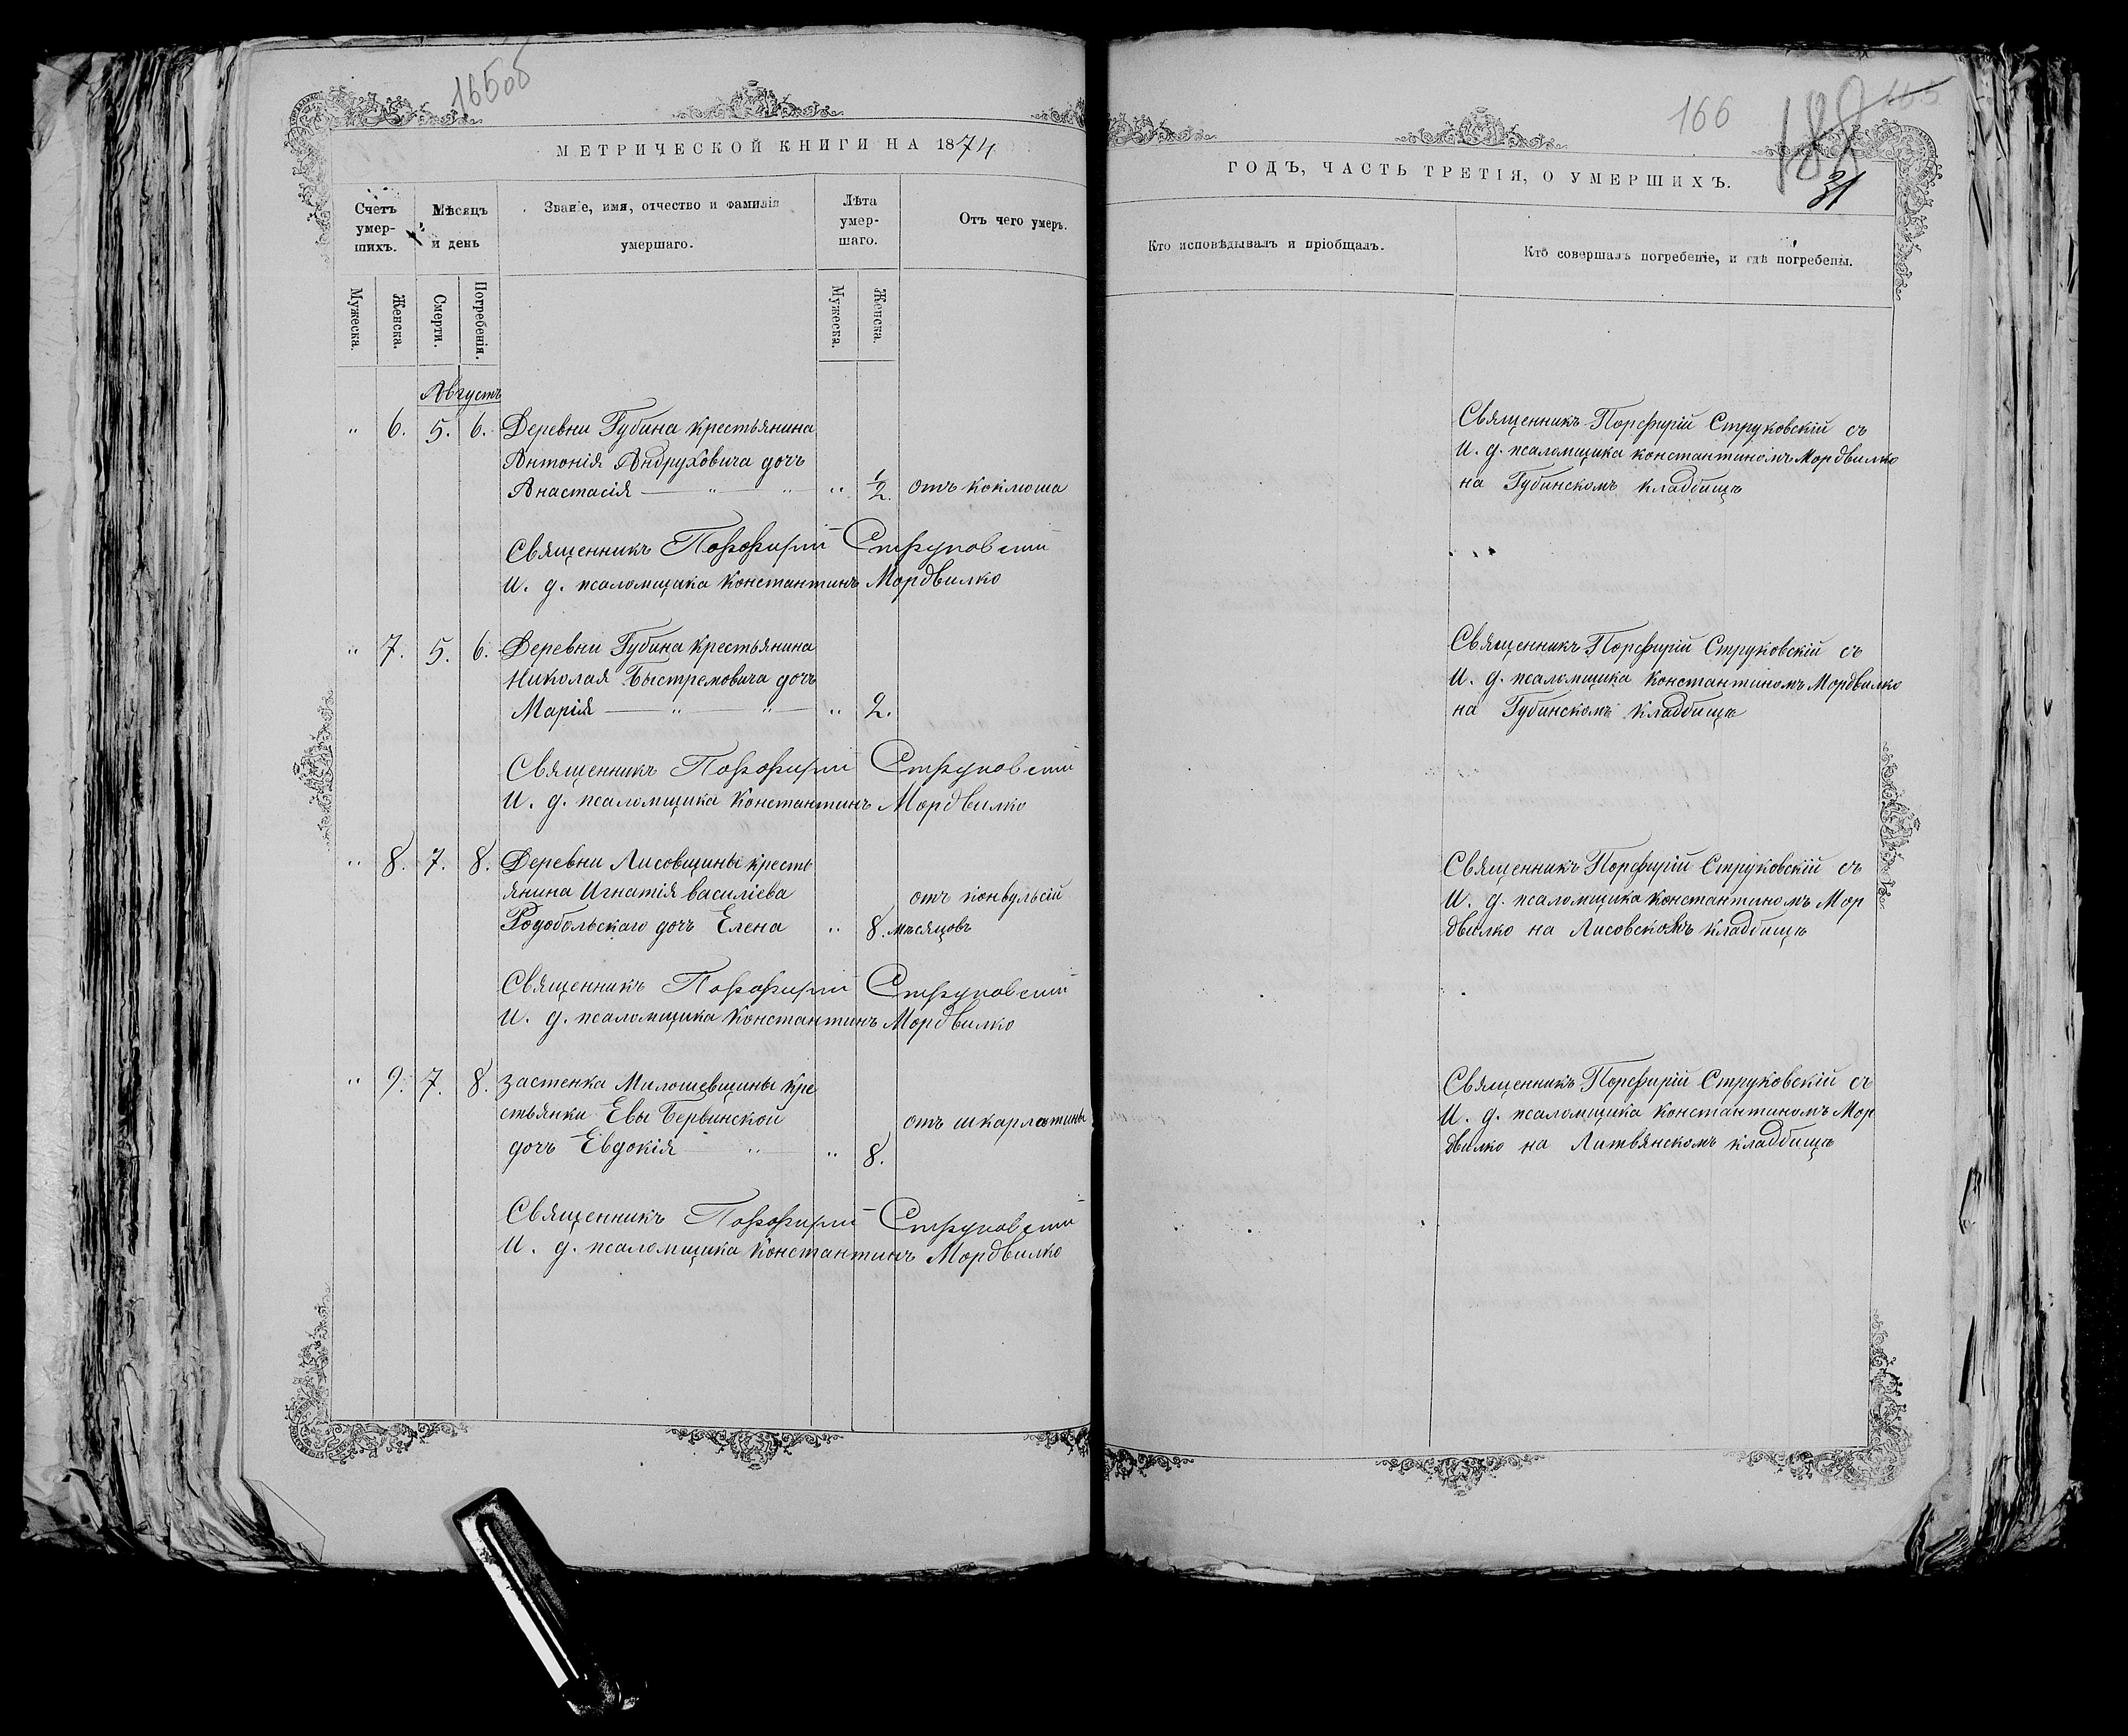 165об
МЕТРИЧЕСКОЙ КНИГИ НА 1874
Счетъ умер-шихъ.
Мѣсяцъ и день
Званіе, имя, отчество и фамилія умершаго.
Лѣта умер-шаго.
Отъ чего умеръ.
Мужеска.
Женска.
Смерти.
Погребенія.
Мужеска.
Женска.
Августъ
" 6. 5. 6. Деревни Губина крестьянина
Антонія Андруховича дочь
Анастасія — " — " " 1/2. отъ коклюша
Священникъ Порфирій Струковскій
И. д. псаломщика Константинъ Мордвилко
" 7. 5. 6. Деревни Губина крестьянина
Николая Быстремовича дочь
Марія — " — " — " 2.
Священникъ Порфирій Струковскій
И. д. псаломщика Константинъ Мордвилко
" 8. 7. 8. Деревни Лисовщины кресть
янина Игнатія Василіева отъ конвульсій
Родобольскаго дочь Елена " 8. мѣсяцовъ
Священникъ Порфирій Струковскій
И. д. псаломщика Константинъ Мордвилко
" 9. 7. 8. Застенка Милошевщины кре
стьянки Евы Бервинской отъ шкарлатины
дочь Евдокія — " " 8.
Священникъ Порфирій Струковскій
И. д. псаломщика Константинъ Мордвилко
166
188
31
ГОДЪ, ЧАСТЬ ТРЕТІЯ, О УМЕРШИХЪ.
Кто исповѣдывалъ и пріобщалъ.
Кто совершалъ погребеніе, и гдѣ погребены.
Священникъ Порфирій Струковскій съ
И. д. псаломщика Константиномъ Мордвилко
на Губинскомъ кладбищѣ
Священникъ Порфирій Струковскій съ
И. д. псаломщика Константиномъ Мордвилко
на Губинскомъ кладбищѣ
Священникъ Порфирій Струковскій съ
И. д. псаломщика Константиномъ Мор
двилко на Лисовскомъ кладбищѣ
Священникъ Порфирій Струковскій съ
И. д. псаломщика Константиномъ Мор
двилко на Литвянскомъ кладбищѣ